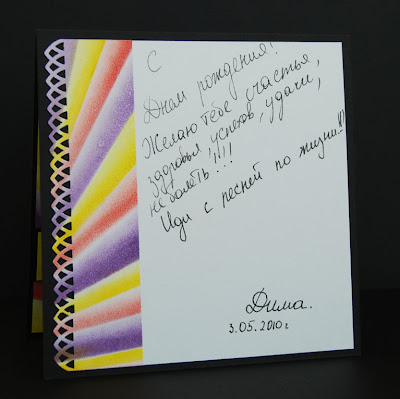 С
Днем рождения!
Желаю тебе счастья,
здоровья, успехов, удачи,
не болеть!!!!!
Иди с песней по жизни!!!
Дима.
3.05.2010 г.